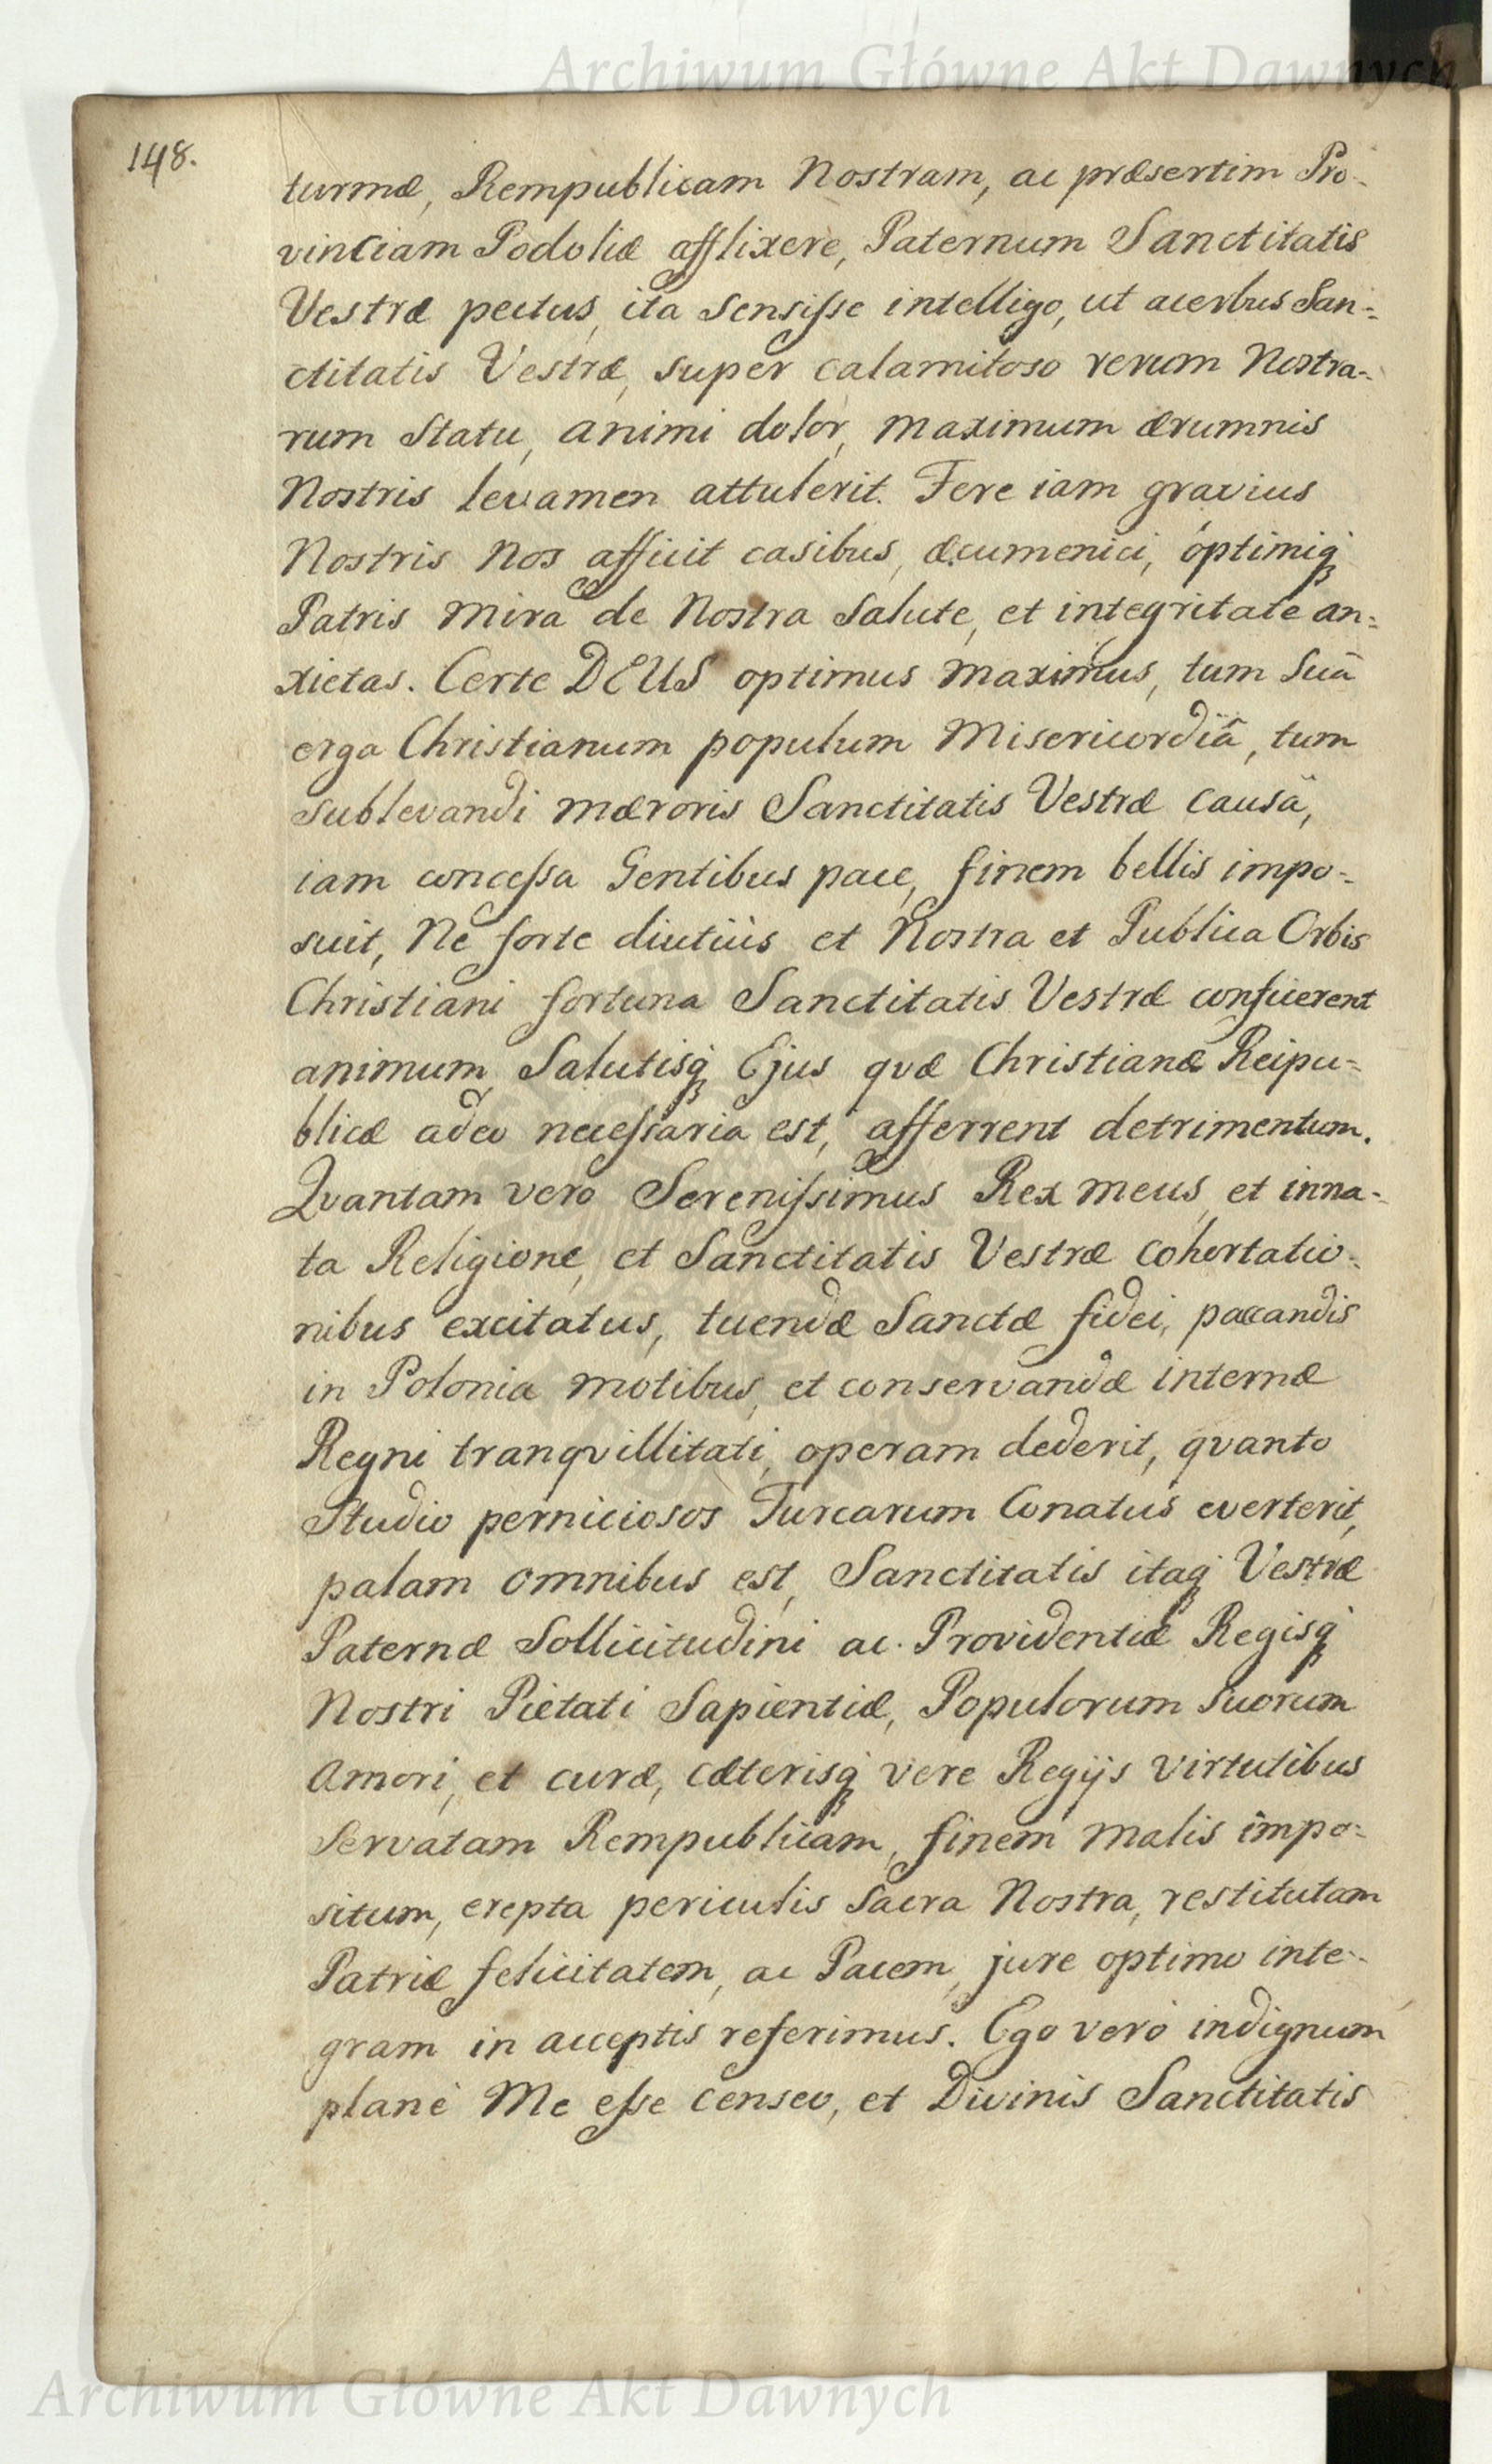 Archiwum Główne Akt Dawnych
148.
turmæ, Rempublicam Nostram, ac præsertim Pro-
vinciam Podoliæ afflixere, Paternum Sanctitatis
Vestræ pectus, ita sensiſse intelligo, ut acerbus San-
ctitatis Vestræ, super calamitoso rerum Nostra-
rum Statu, animi dolor, maximum ærumnis
Nostris levamen attulerit. Fere iam gravius
Nostris Nos afficit casibus, œcumenici, optimiq
Patris mira de Nostra Salute, et integritate an-
xietas. Certe DEUS optimus maximus, tum Suâ
erga Christianum populum Misericordiâ, tum
sublevandi mæroris Sanctitatis Vestræ causâ,
iam conceſsa Gentibus pace, finem bellis impo-
suit, Ne forte diutiùs et Nostra et Publica Orbis
Christiani fortuna Sanctitatis Vestræ conficerent
animum, Salutisq Ejus qvæ Christianæ Reipu-
blicæ adeo neceſsaria est, afferrent detrimentum.
Qvantam vero Sereniſsimus Rex meus, et inna-
ta Religione, et Sanctitatis Vestræ cohortatio-
nibus excitatus, tuendæ Sanctæ fidei, paccandis
in Polonia motibus, et conservandæ internæ
Regni tranqvillitati, operam dederit, qvanto
Studio perniciosos Turcarum Conatus everterit,
palam omnibus est, Sanctitatis itaq Vestræ
Paternæ Sollicitudini ac Providentiæ Regisq
Nostri Pietati Sapientiæ, Populorum Suorum
Amori, et curæ, cæterisq vere Regijs virtutibus
Servatam Rempublicam, finem malis impo-
situm, erepta periculis Sacra Nostra, restitutam
Patriæ felicitatem, ac Pacem, jure optimo inte-
gram in acceptis referimus. Ego vero indignum
planè Me eſse censeo, et Divinis Sanctitatis
Archiwum Główne Akt Dawnych